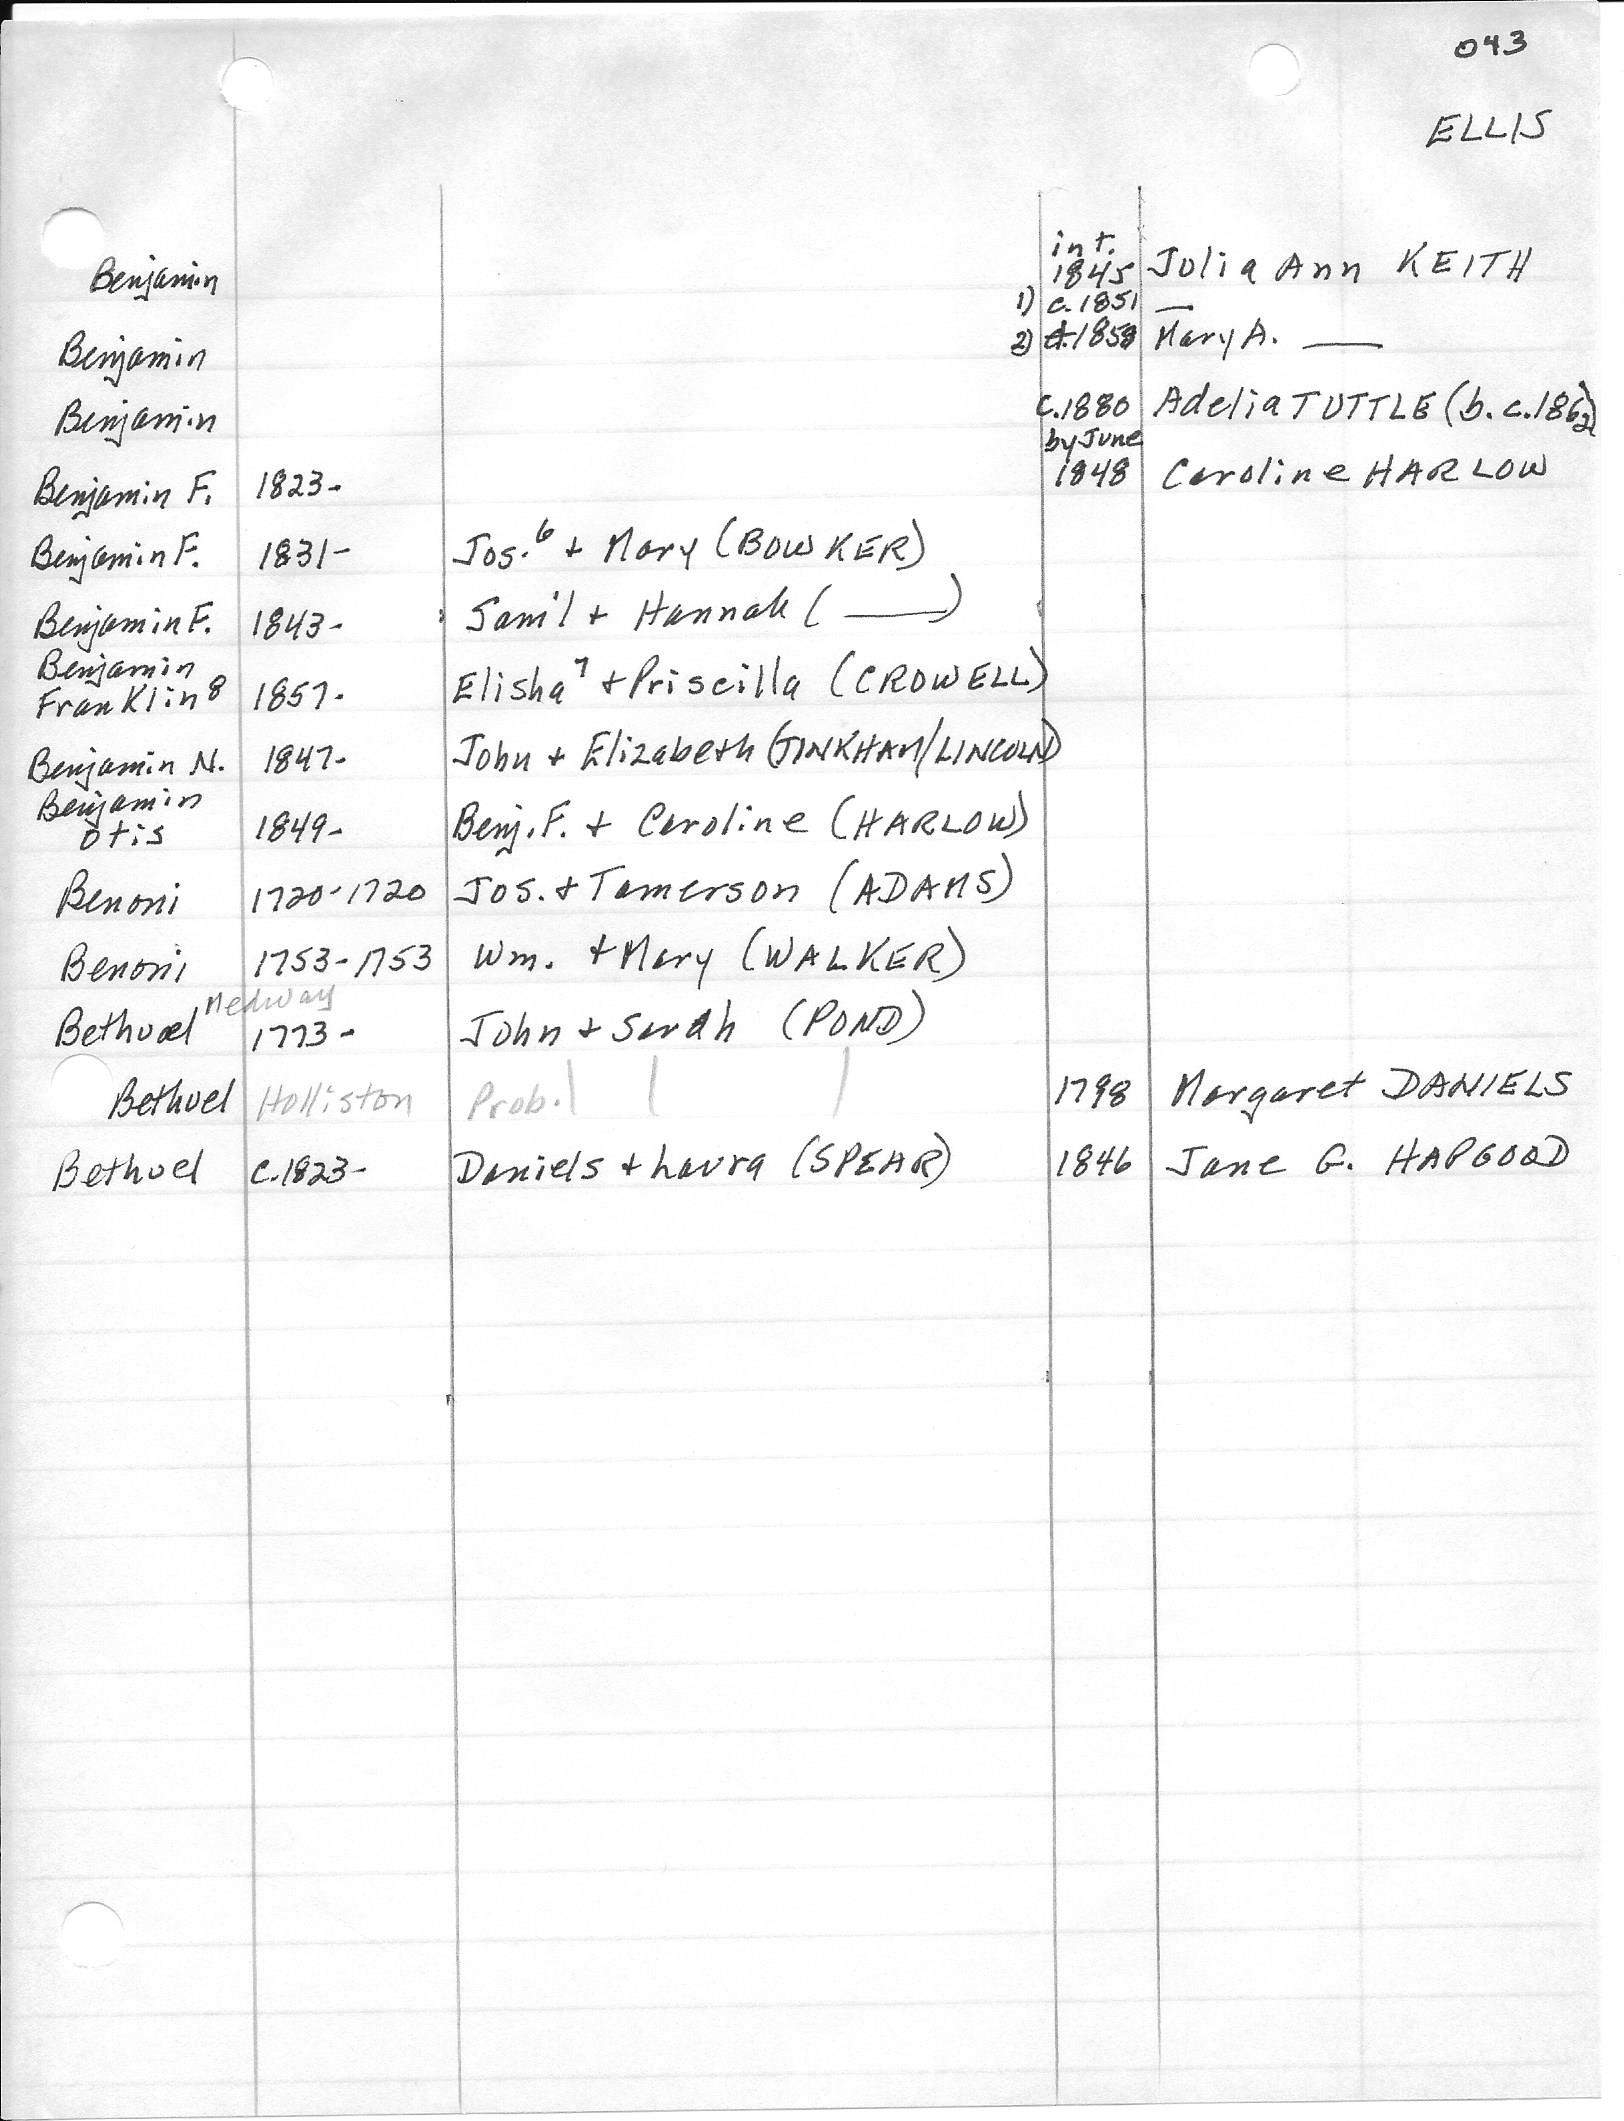 043
ELLIS
int.
Benjamin 1845 Julia Ann KEITH
1) c.1851 —
Benjamin 2) 1858 Mary A. ——
Benjamin c.1880 Adelia TUTTLE (b. c.1862)
by June
Benjamin F. 1823- 1848 Caroline HARLOW
Benjamin F. 1831- Jos.⁶ + Mary (BOWKER)
Benjamin F. 1843- Sam'l + Hannah ( —— )
Benjamin
Franklin 8 1857- Elisha⁷ + Priscilla (CROWELL)
Benjamin N. 1847- John + Elizabeth (TINKHAM/LINCOLN)
Benjamin
Otis 1849- Benj. F. + Caroline (HARLOW)
Benoni 1720-1720 Jos. + Tamerson (ADAMS)
Benoni 1753-1753 Wm. + Mary (WALKER)
Medway
Bethuel 1773- John + Sarah (POND)
Bethuel Holliston Prob. | | | 1798 Margaret DANIELS
Bethuel c.1823- Daniels + Laura (SPEAR) 1846 Jane G. HAPGOOD